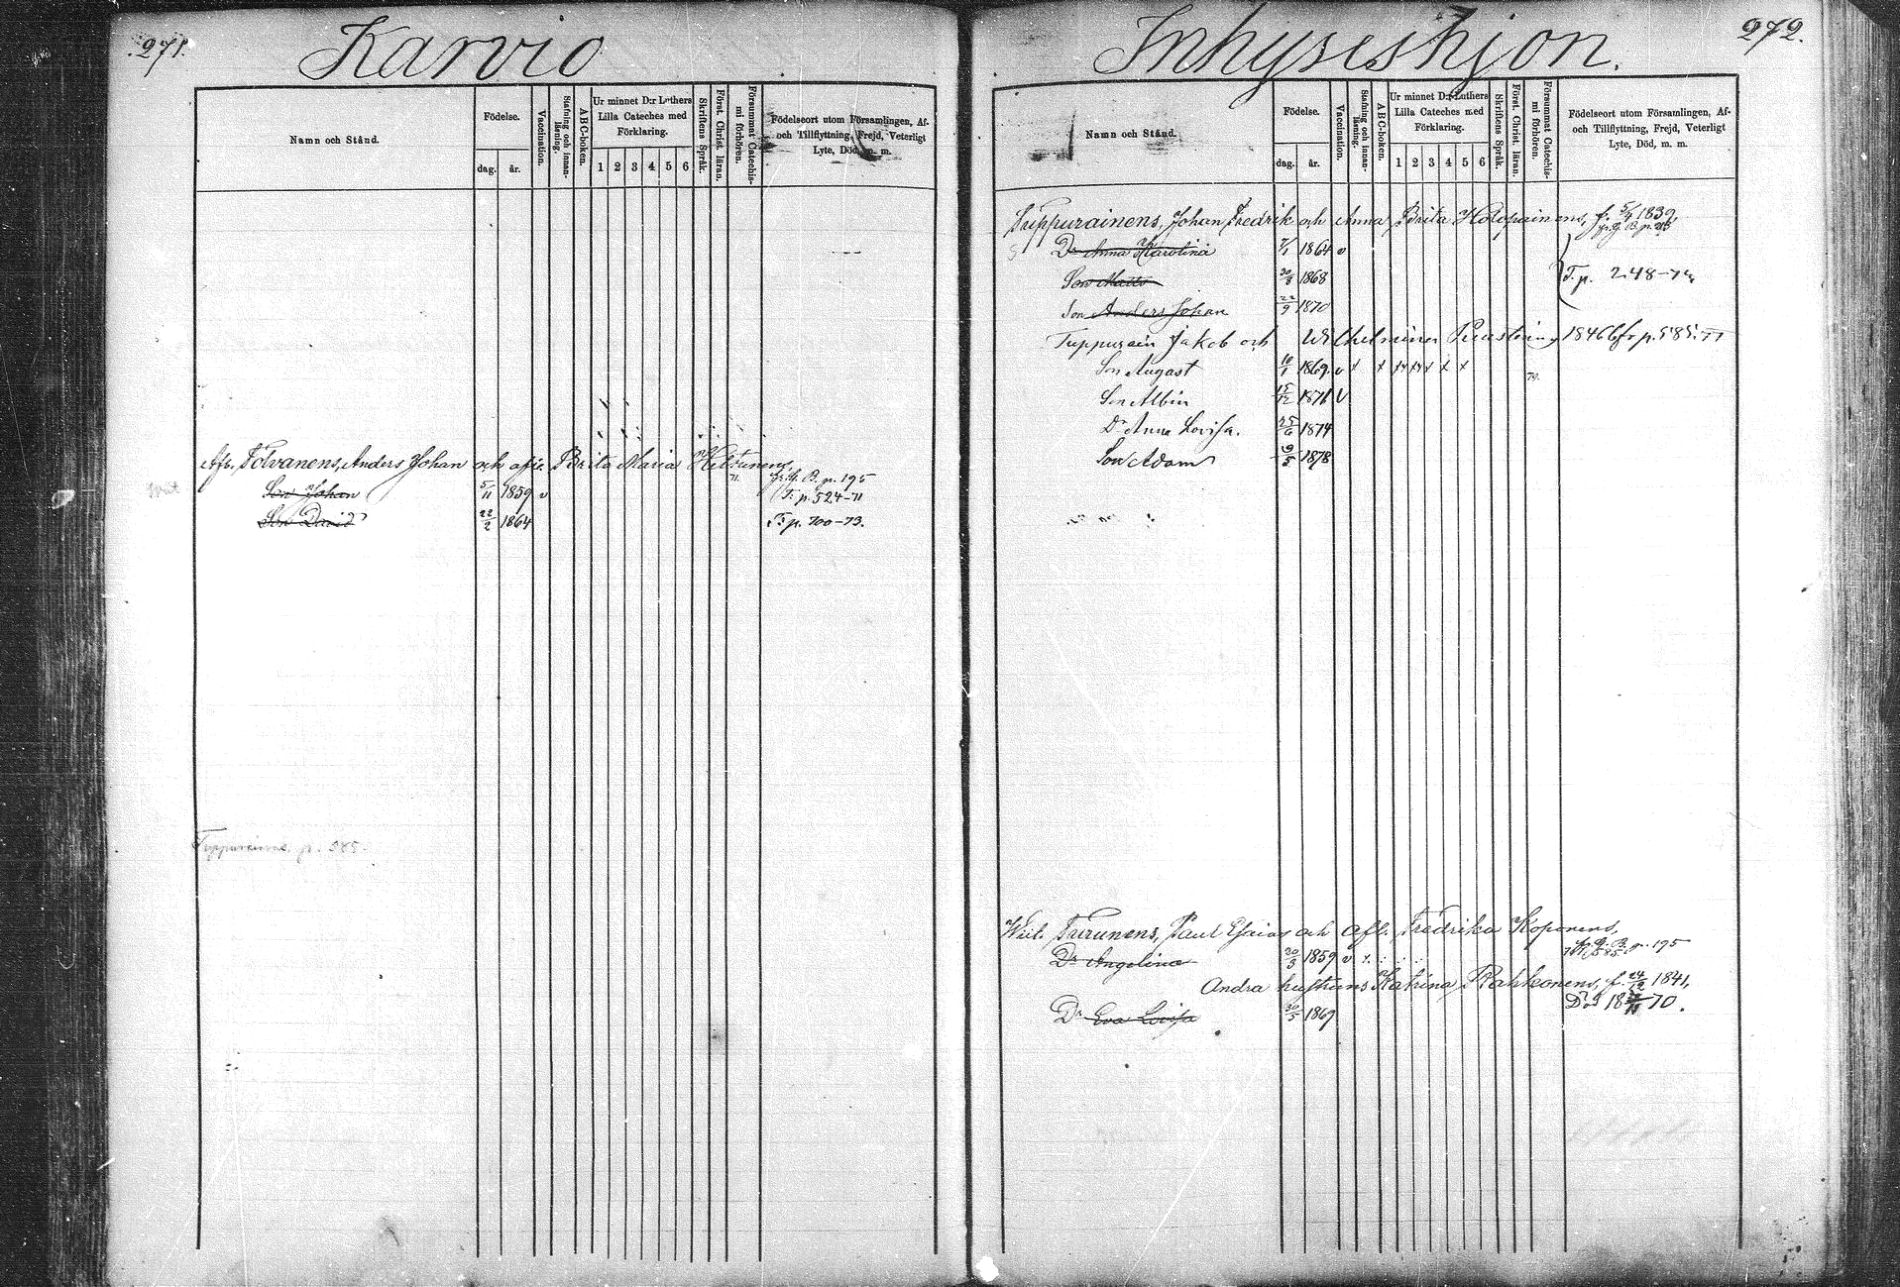 271.
Karvio
Namn och Stånd.
Födelse.
dag.
år.
Vaccination.
Stafning och innan-läsning.
ABC-boken.
Ur minnet D:r Luthers
Lilla Cateches med
Förklaring.
1 2 3 4 5 6
Skriftens Språk.
Först. Christ. läran.
Försummat Catechis-mi förhören.
Födelseort utom Församlingen, Af-
och Tillflyttning, Frejd, Veterligt
Lyte, Död, m. m.
Afl. Tolvanens, Anders Johan och afl. Brita Maria Hiltunens,
fr. g. B. p. 195
Son Johan 5/11 1859 v T. p. 524-71
Son David 22/2 1864 T. p. 700-73.
Tuppurainens p. 585.
272.
Inhyseshjon.
Namn och Stånd.
Födelse.
dag.
år.
Vaccination.
Stafning och innan-läsning.
ABC-boken.
Ur minnet D:r Luthers
Lilla Cateches med
Förklaring.
1 2 3 4 5 6
Skriftens Språk.
Först. Christ. läran.
Försummat Catechis-mi förhören.
Födelseort utom Församlingen, Af-
och Tillflyttning, Frejd, Veterligt
Lyte, Död, m. m.
Tuppurainens, Johan Fredrik och Anna Brita Holopainens, f. 5/4 1839,
fr. g. B. p.
Dr Anna Karolina 7/1 1864 v
Son Matts 20/8 1868 T. p. 248-74
Son Anders Johan 22/9 1870
Tuppurain Jakob och Wilhelmina 1846 fr p. 585.77
Son August 10/1 1869. v x x x x x x x
Son Albin 15/12 1871 v
Dr Anna Lovisa. 25/6 1874
Son Adam 19/5 1878
Paul Esaias och afl. Fredrika Koponens,
fr. g. B. p. 195
Dr Angelina 20/3 1859 v
Andra hustruns Katrina Rahkonens, f. 24/12 1841,
Dr Eva Lovisa 20/5 1869